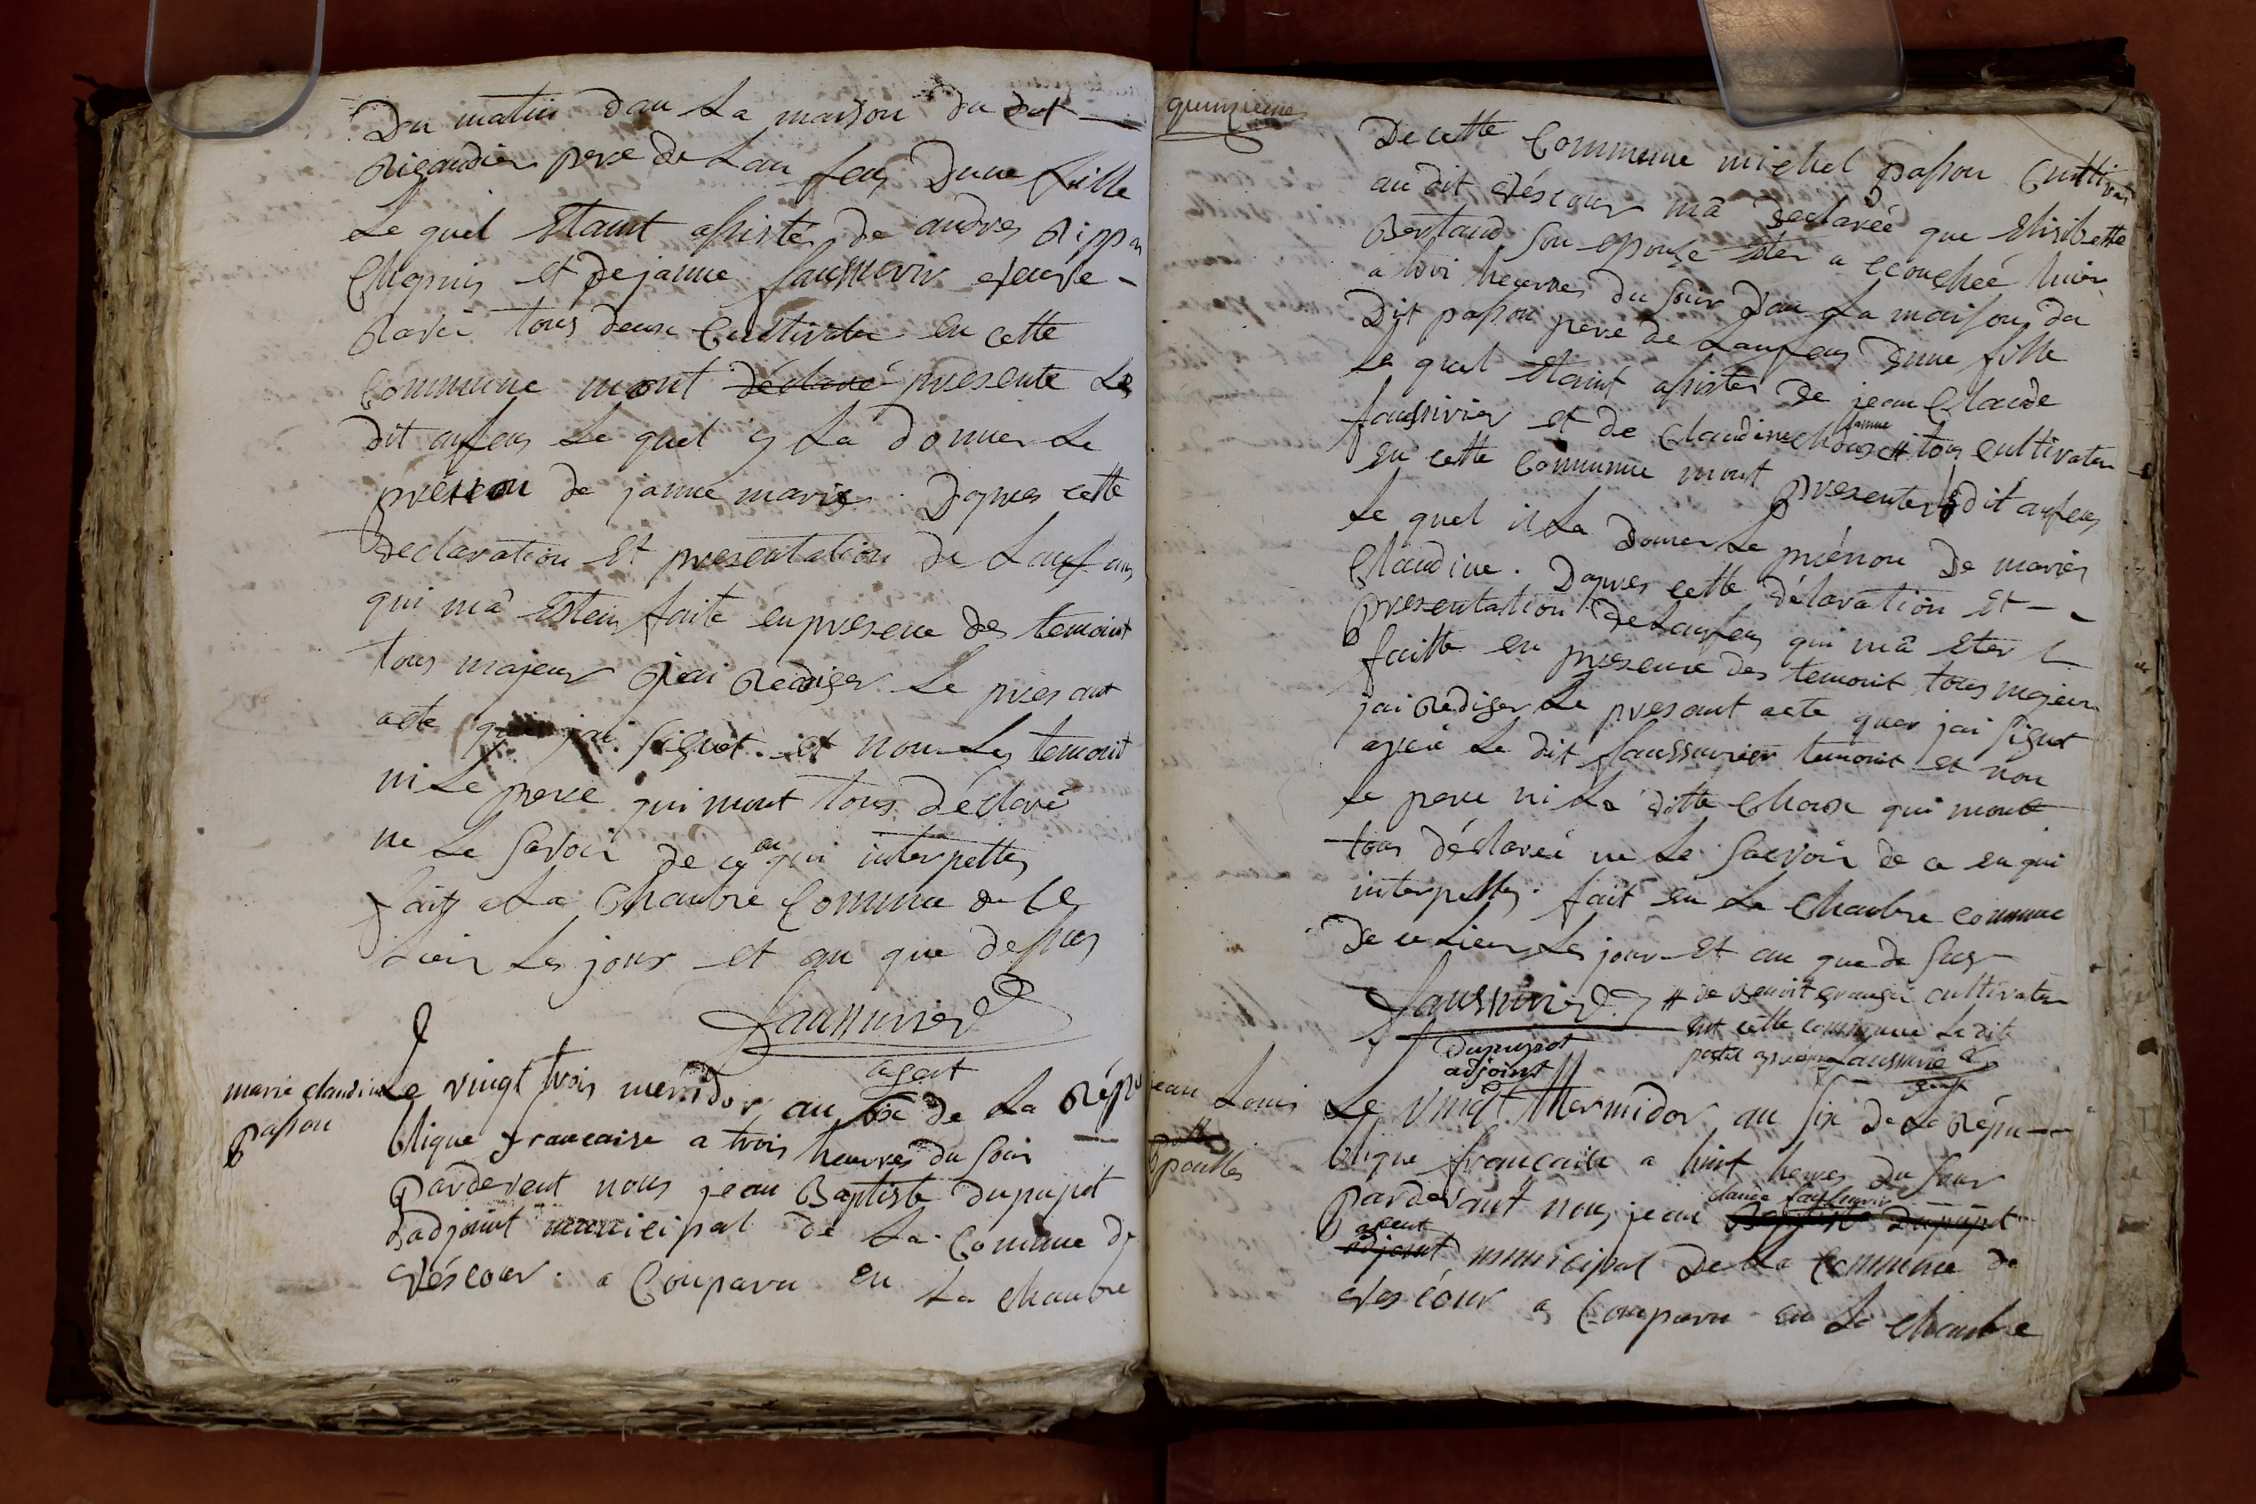 Du matin dan La maison du dit
Rigaudier pere de Lan fens Dune fille
Le quel Etant assisté de andres
et de janne
tous deux Cultivater en cette
Commune mont déclaré presente Le
dit anfens Le quel y La donner Le
prénon de janne marie. Dapres cette
declaration Et presentation de Lanfans
qui mâ faite en presence des temoint
tous majeur jai Rediger Le presant
acte que jai signet. et non Les temoint
ni Le pere qui mont tous Déclaré
ne Le Savoir de ce en qui interpelles
fait a La Chanbre Comune de Ce
Lieu Les jour et an que dessus
agent
marie claudine
passon
Le vingt trois au six de La Répu
blique francaise a trois heures du soir
pardevent nous jean Baptiste dupupet
adjoint municipal de La Comune de
Véscour. a Conparu en La chanbre
quinzieme
De cette Commune michel passon Cultivater
au dit Véscour mâ declareé que Elisibette
Bertaud Son epouse eter a ecoucheé hier
a troi heures du soir Dan La maison du
Dit passon pere de Lanfens Dune fille
Le quel Etaint assister de jean Claude
et de Claudine Choux femme # tous cultivater
en cette Commune mont presenter Le dit anfens
Le quel il La Donner Le prénon De maries
Claudine. Dapres cette déclaration et
presentation de Lanfens qui mâ eter
faitte en presence des temoint tous majeur
jai Rediger Le presant acte quer jai signet
avec Le dit temoint et non
le pere ni La ditte Choux qui mont
tous déclareé ne Le Saevoir de ce en qui
interpelles. fait en La Chanbre commune
De ce Lieu Les jour et an que de sus
# de Benoit cultivater
cette commune Le dit
dupupet
adjoint
agent
jean Louis
Le vingt thermidor au six de La Répu
blique francaise a huit heures du soir
pardevant nous jean Baptiste Dupupet claude
agent
adjoint municipal De La Commune de
Vescour a Conparu en La Chanbre